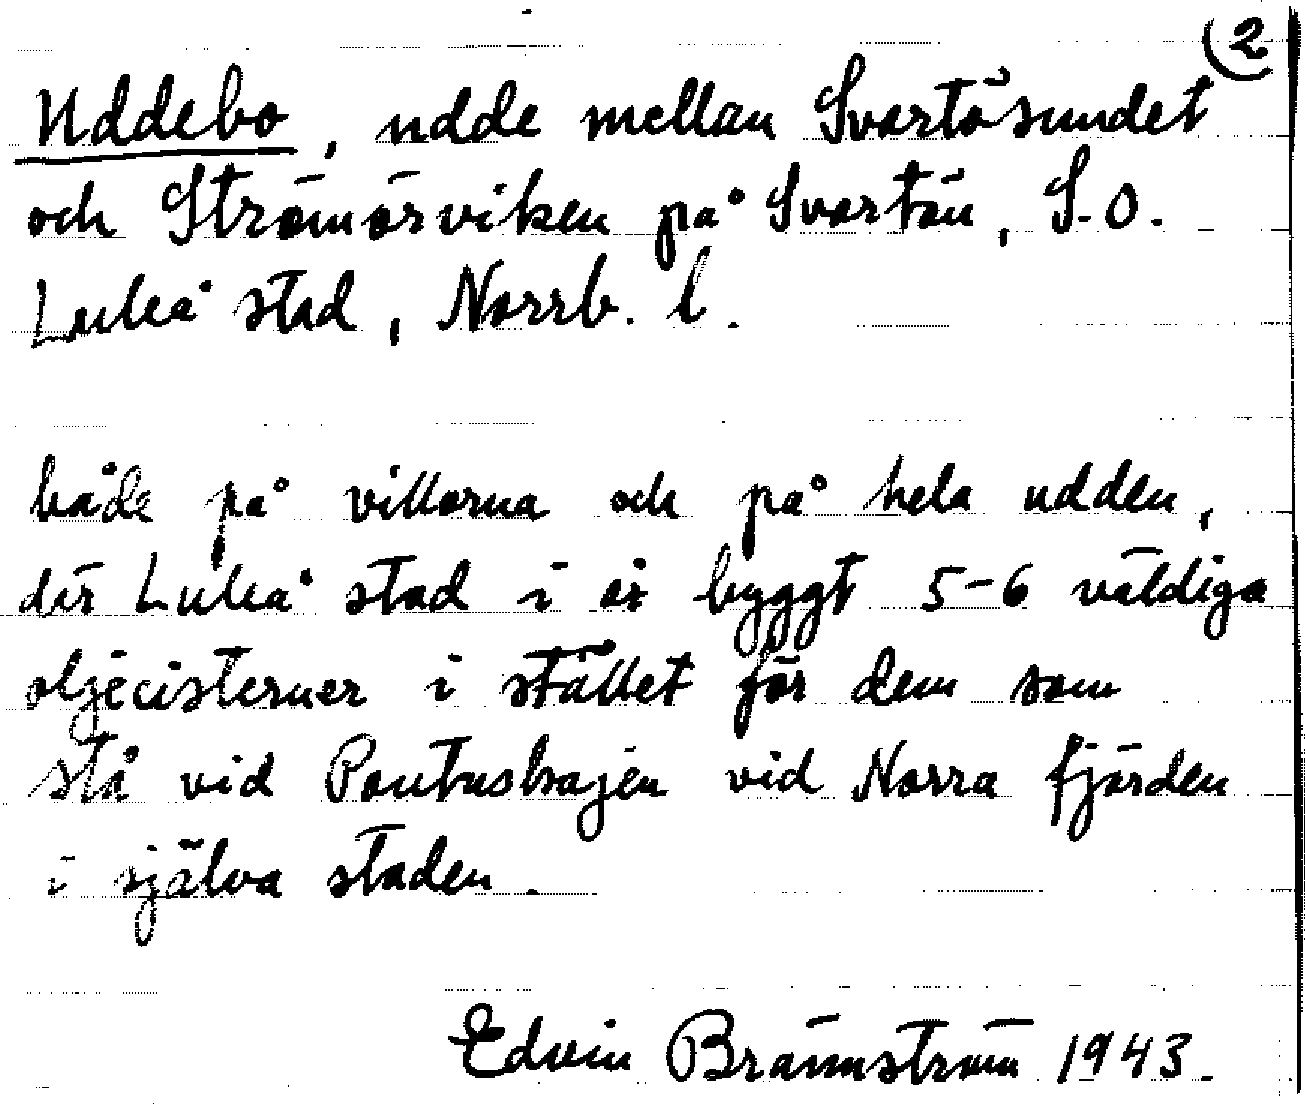 (2
Uddebo, udde mellan Svartösundet
och Strömörviken på Svartön, S.O.
Luleå stad, Norrb. l.
både på villorna och på hela udden,
där Luleå stad i år byggt 5-6 väldiga
oljecisterner i stället för dem som
stå vid Pontuskajen vid Norra fjärden
i själva staden.
Edvin Brännström 1943.